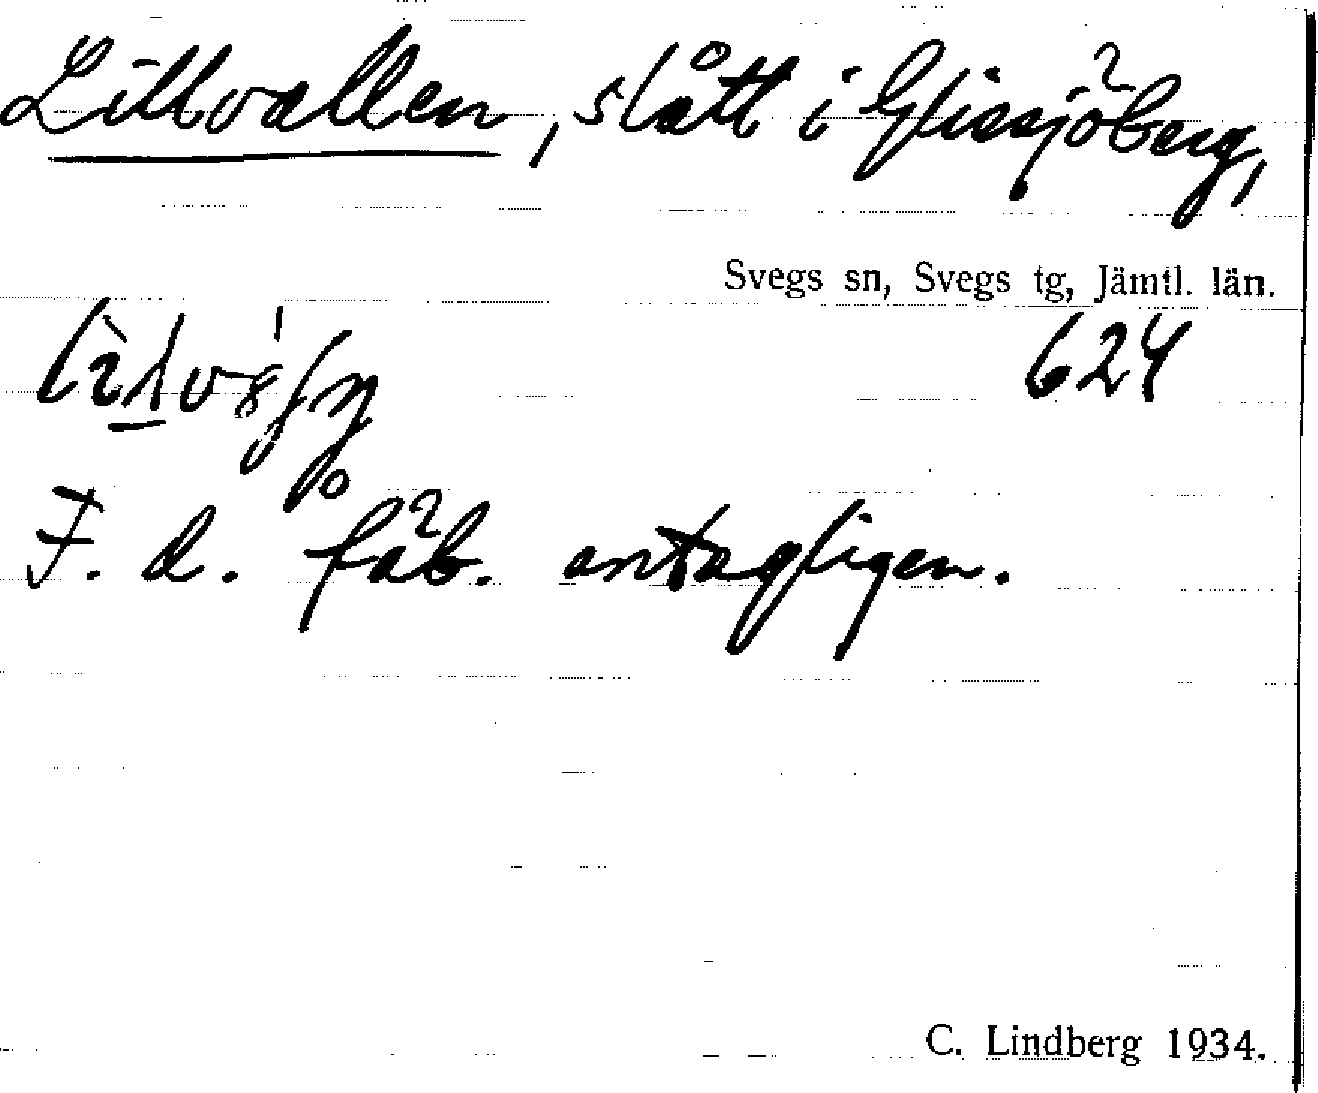 Lillvallen, slått i Glissjöberg,
Svegs sn, Svegs tg, Jämtl. län.
624
F. d. fäb. antagligen.
C. Lindberg 1934.